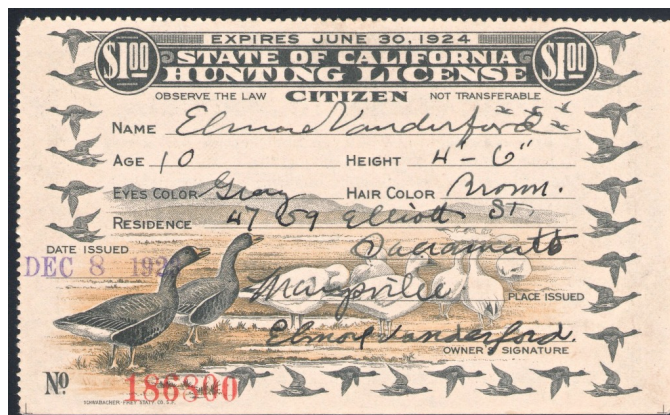 EXPIRES JUNE 30, 1924
$1.00 STATE OF CALIFORNIA $1.00
HUNTING LICENSE
OBSERVE THE LAW CITIZEN NOT TRANSFERABLE
NAME Elmore Vanderford
AGE 10 HEIGHT 4-6"
EYES COLOR Gray HAIR COLOR Brown.
RESIDENCE Elliott St.
DATE ISSUED Sacramento
DEC 8
Marysville PLACE ISSUED
Elmore Vanderford.
OWNER'S SIGNATURE
No 186800
SCHWABACHER-FREY STAT'Y CO. S.F.